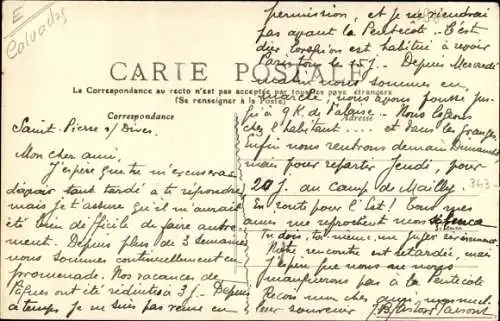 E
Calvados
CARTE POSTALE
La Correspondance au recto n'est pas acceptée par tous les pays étrangers
(Se renseigner à la Poste)
Correspondance
Adresse
Saint-Pierre s/ Dives.
Mon cher ami,
J'espère que tu m'excuseras
d'avoir tant tardé à te répondre
mais je t'assure qu'il m'aurait
été bien difficile de faire autre-
ment. Depuis plus de 3 semaines
nous sommes continuellement en
promenade. Nos vacances de
Pâques ont été réduites à 3 j. Depuis
ce temps je ne suis pas revenu en
permission, et je ne reviendrai
pas avant la Pentecôte. C'est
dur lorsqu'on est habitué à revoir
Paris tous les 15 j. Depuis Mercredi
matin nous sommes en
marche, nous avons poussé jus-
qu'à 9 K. de Falaise. Nous logeons
chez l'habitant .... et dans les granges
Enfin nous rendrons demain Dimanche
mais pour repartir Jeudi pour
20 j. au camp de Mailly.
343
En route pour l'Est! Tous mes
amis me reprochent mon silence
Tu dois, toi même, me juger sévèrement
Notre rencontre est retardée, mais
j'espère que nous ne nous
manquerons pas à la Pentecôte
Reçois mon cher ami mon meil-
leur souvenir